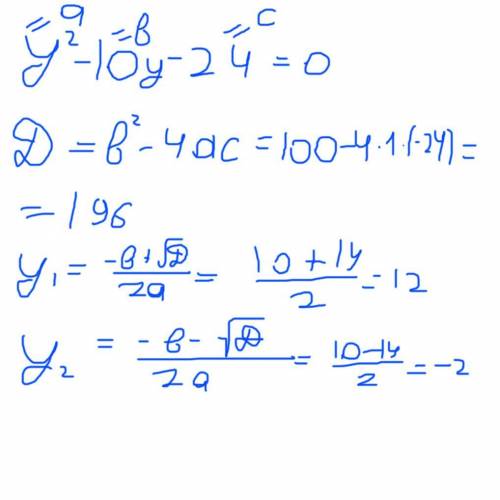 a в c
y² - 10y - 24 = 0
D = в² - 4ac = 100 - 4 · 1 · (-24) =
= 196
y₁ = (-в + √D)/(2a) = (10 + 14)/2 = 12
y₂ = (-в - √D)/(2a) = (10 - 14)/2 = -2